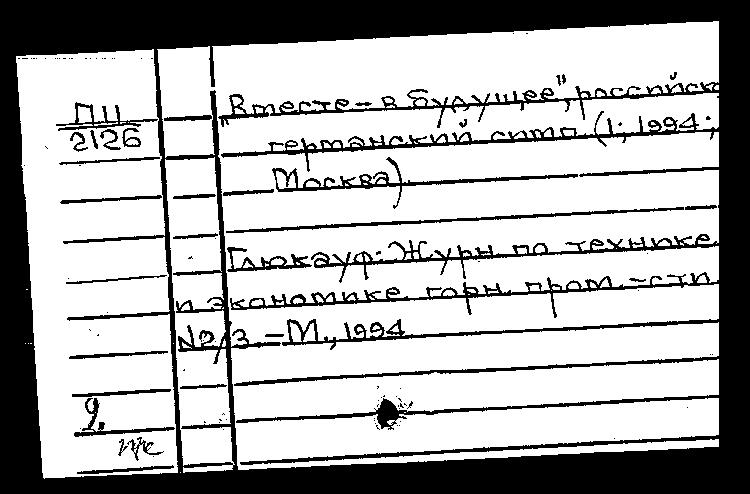 ПЦ
2126
"Вместе – в будущее", российск
германский симп. (1; 1994;
Москва).
Глюкауф: Журн. по технике
и экономике горн. пром.-сти
№2/3. – М., 1994
9.